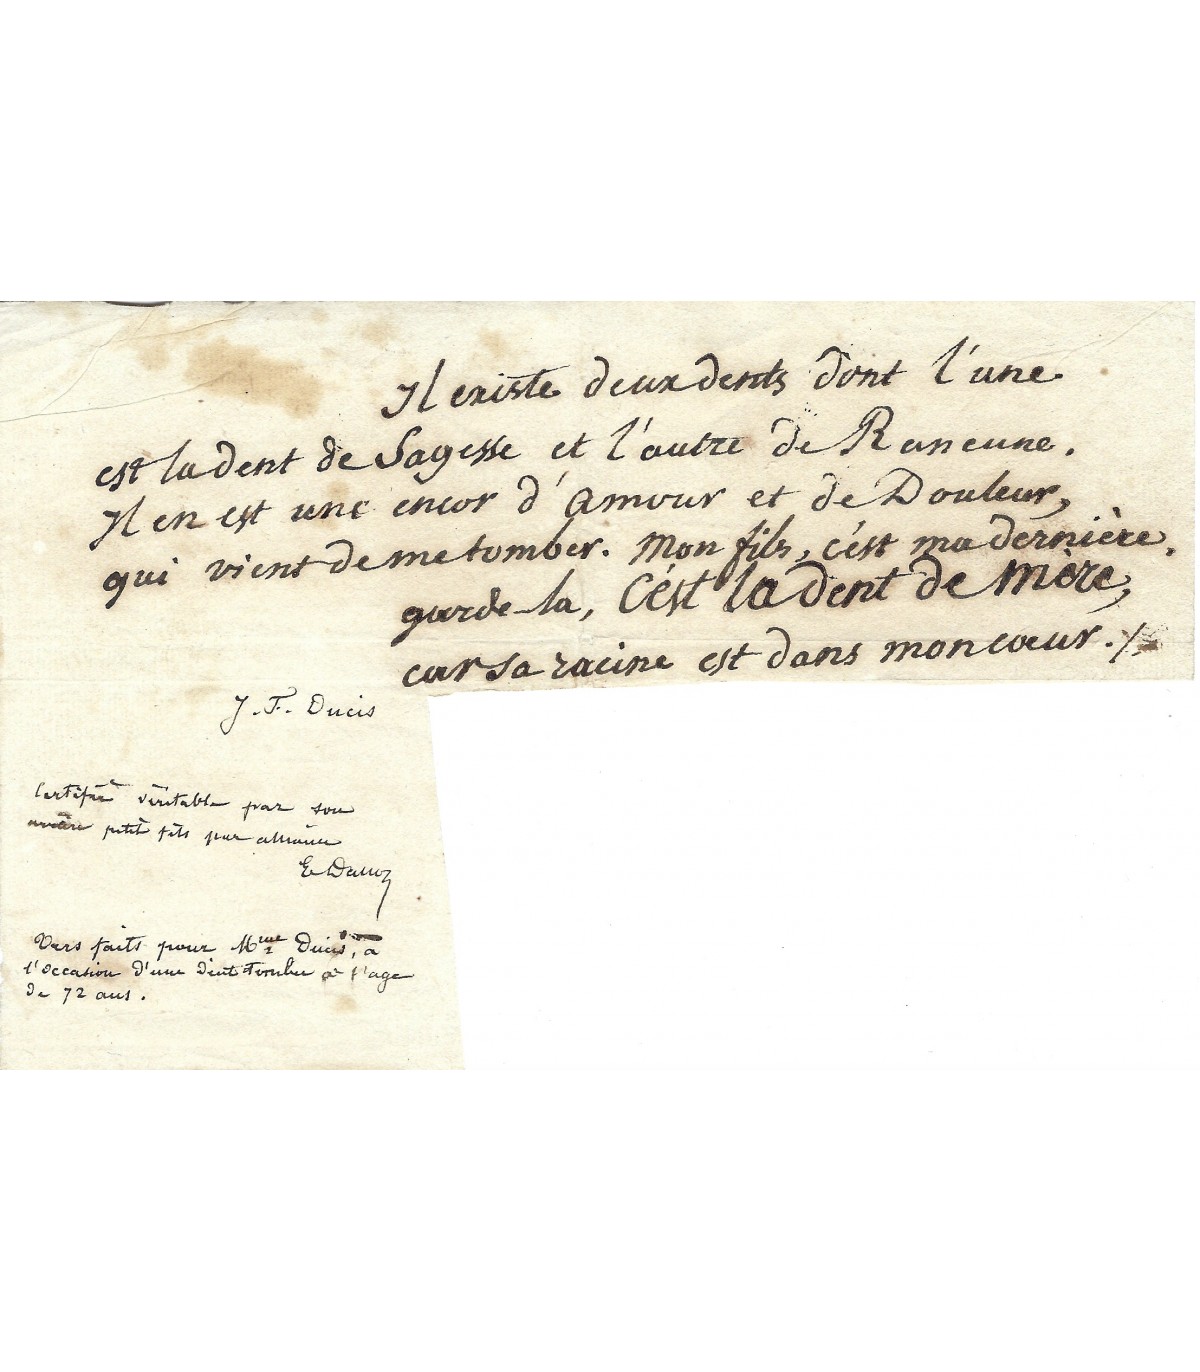 Il existe deux dents dont l'une
est la dent de Sagesse et l'autre de Rancune.
Il en est une encor d'Amour et de Douleur,
qui vient de me tomber. Mon fils, c'est ma dernière.
garde-la, C'est la dent de mère,
car sa racine est dans mon cœur.
J. F. Ducis
Certifié véritable par son
petit fils par alliance
Vers faits pour Mme Ducis, à
l'occasion d'une dent tombée à l'age
de 72 ans.